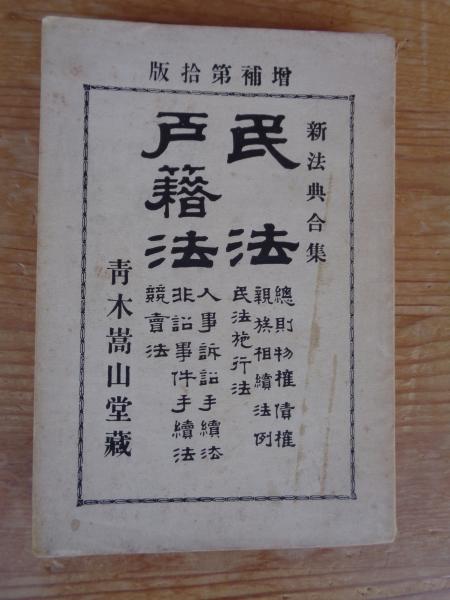 増補第拾版
新法典合集
民法
總則物權債權
親族相續法例
民法施行法
戸籍法
人事訴訟手續法
非訟事件手續法
競賣法
青木嵩山堂藏